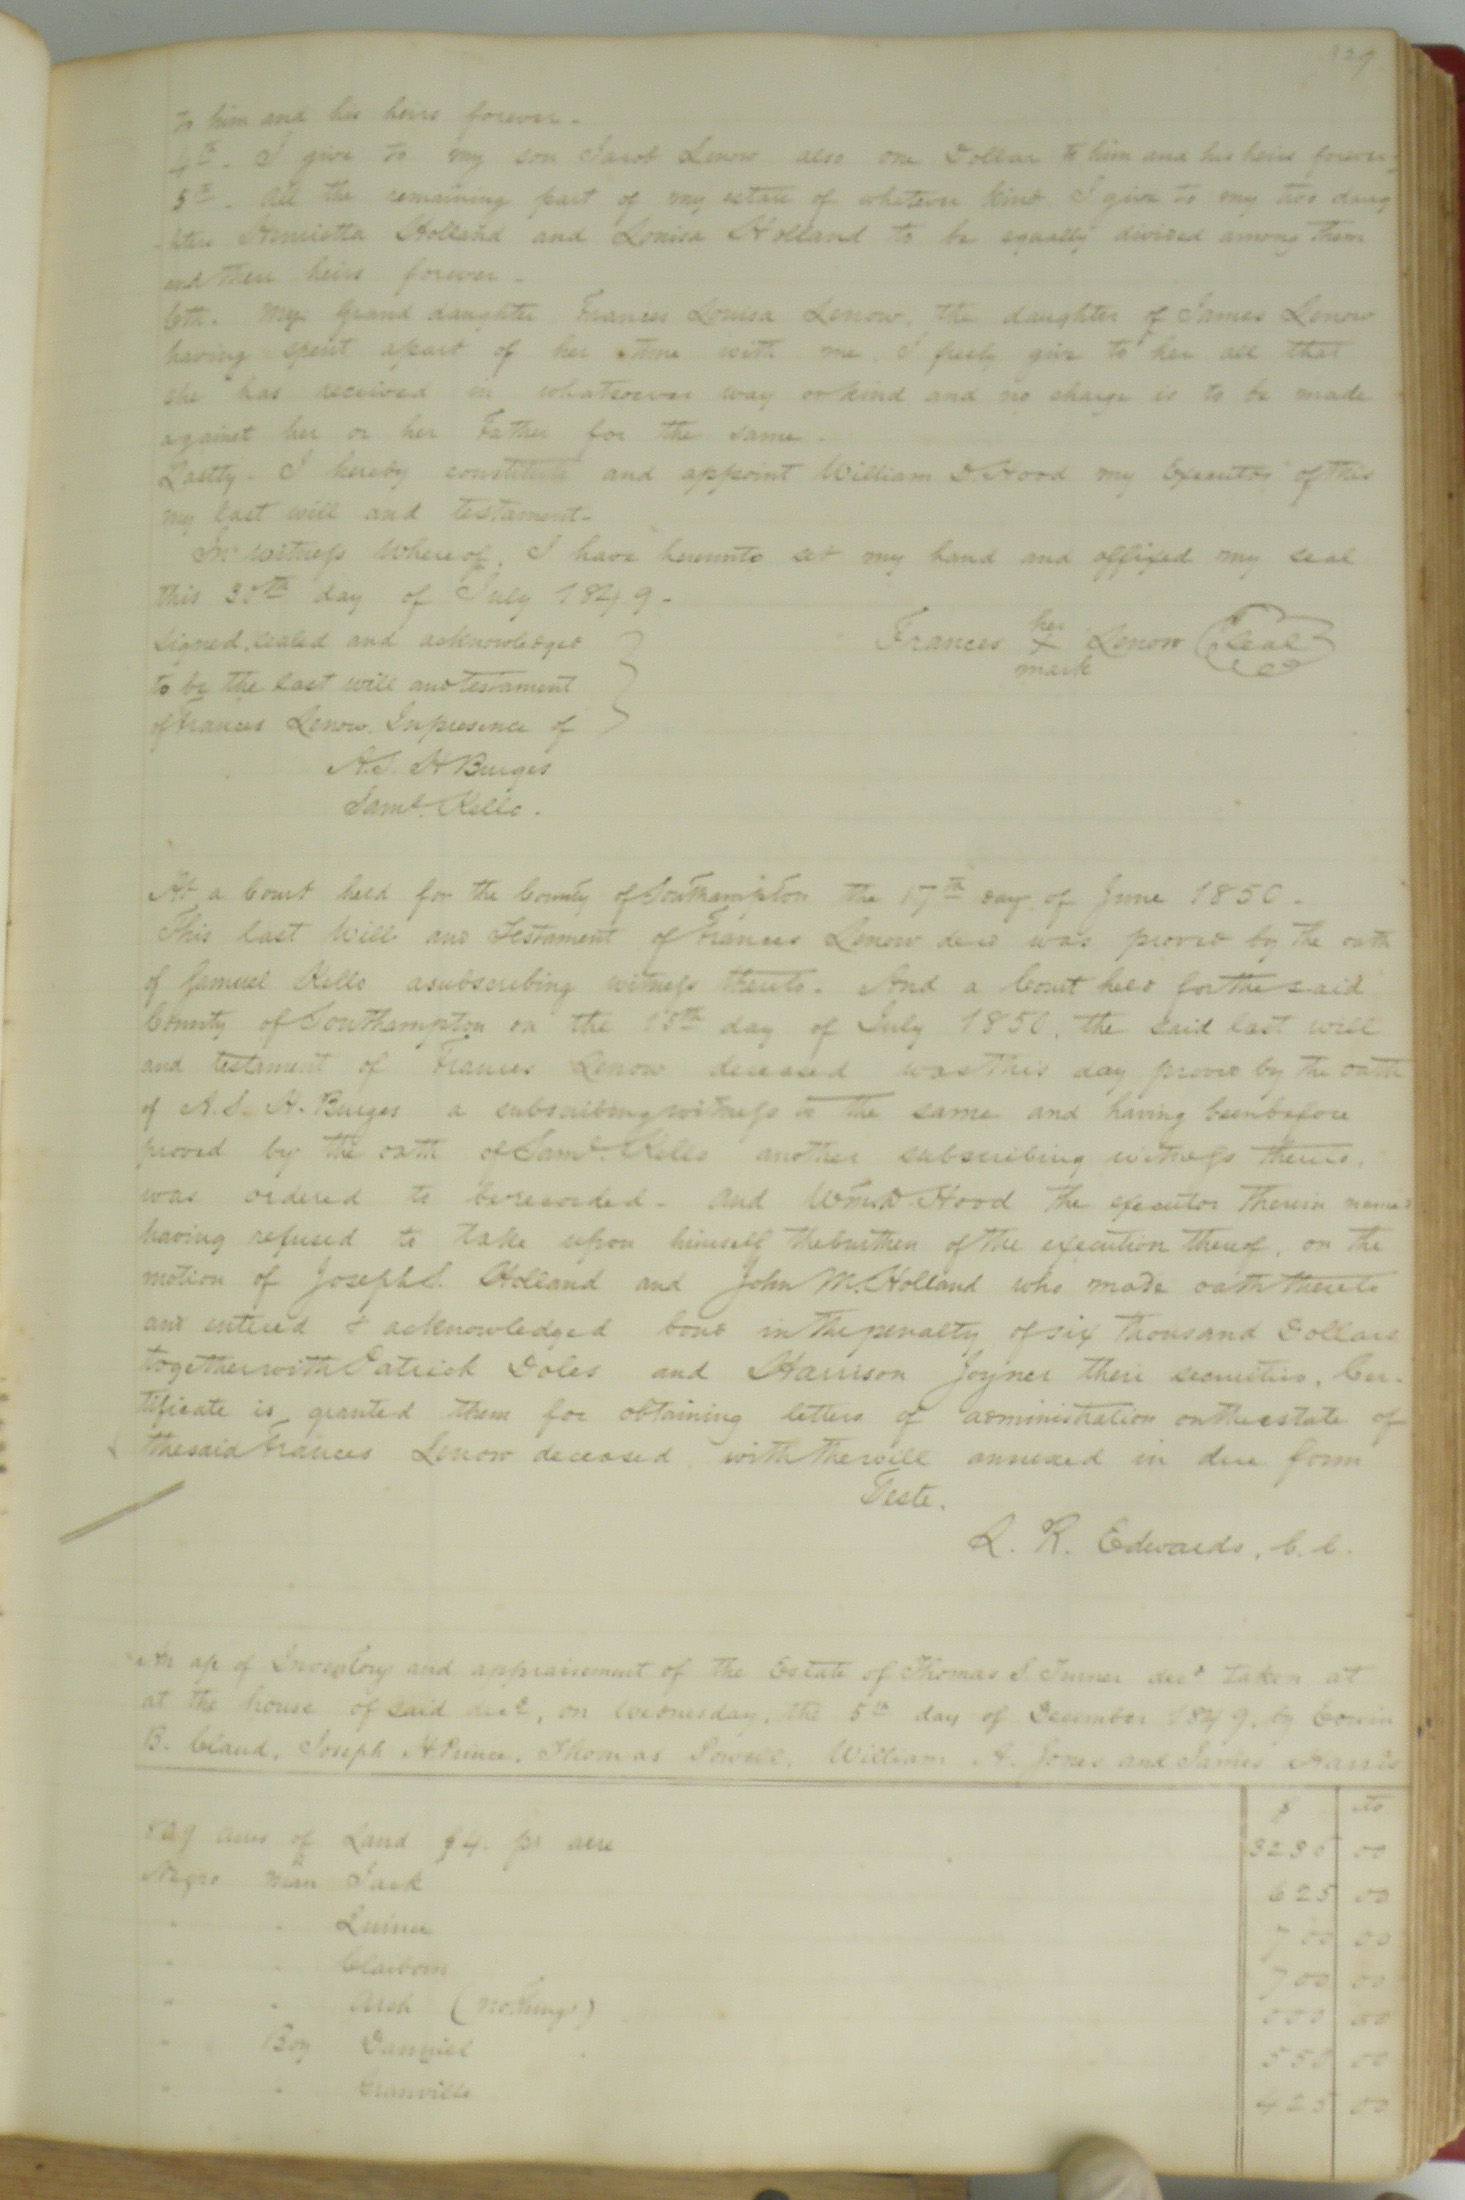 329
to him and his heirs forever.
4th. I give to my son Jacob Lenow also one Dollar to him and his heirs forever.
5th. All the remaining part of my estate of whatever kind. I give to my two daug
hters Henrietta Holland and Louisa Holland to be equally divided among them
and their heirs forever.
6th. My Grand daughter Frances Louisa Lenow, the daughter of James Lenow
having spent apart of her time with me, I freely give to her all that
she has received in whatsoever way or kind and no charge is to be made
against her or her Father for the same.
Lastly. I hereby constitute and appoint William D. Hood my Executor of this
my last will and testament.
In witness Whereof, I have hereunto set my hand and affixed my seal
this 30th day of July 1849.
Signed, sealed and acknowledged
to be the last will and testament
of Frances Lenow. In presence of
A.S. H Burges
Saml. Kello.
her
Frances X Lenow Seal
mark
At a Court held for the County of Southampton the 17th day of June 1850.
This last Will and Testament of Frances Lenow decd was proved by the oath
of Samuel Kello a subscribing witness thereto. And a Court held for the said
County of Southampton on the 15th day of July 1850, the said last will
and testament of Frances Lenow deceased was this day proved by the oath
of A.S. H. Burges a subscribing witness to the same and having been before
proved by the oath of Saml. Kello another subscribing witness thereto,
was ordered to be recorded. And Wm. D. Hood the executor therein named
having refused to take upon himself the burthen of the execution thereof, on the
motion of Joseph S. Holland and John M. Holland who made oath thereto
and entered & acknowledged bond in the penalty of six thousand Dollars
together with Patrick Doles and Harrison Joyner their securities, Cer-
tificate is granted them for obtaining letters of administration on the estate of
the said Frances Lenow deceased with the will annexed in due form
Teste.
L. R. Edwards, C. C.
An a/c of Inventory and appraisement of the Estate of Thomas S. Turner decd taken at
at the house of said decd, on Wednesday, the 5th day of December 1849, by Edwin
B. Claud, Joseph H Prince, Thomas Powell, William A. Jones and James Harris
$ cts
809 acres of Land $4. pr acre 3236 00
Negro man Jack 625 00
" " 700 00
" " Claiborn 700 00
" " Arch (nothing) 000 00
" Boy Danniel 550 00
" " Granville 425 00